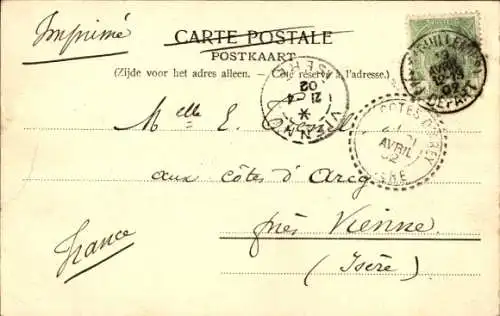 Imprimé
CARTE POSTALE
POSTKAART
(Zijde voor het adres alleen. – Côté réservé à l'adresse.)
GUILLEMINS
DEPART
02
VIENNE
ISERE
21
4
02
AVRIL
02
ISERE
Melle E.
aux Côtes d'Arey
près Vienne
(Isère)
France